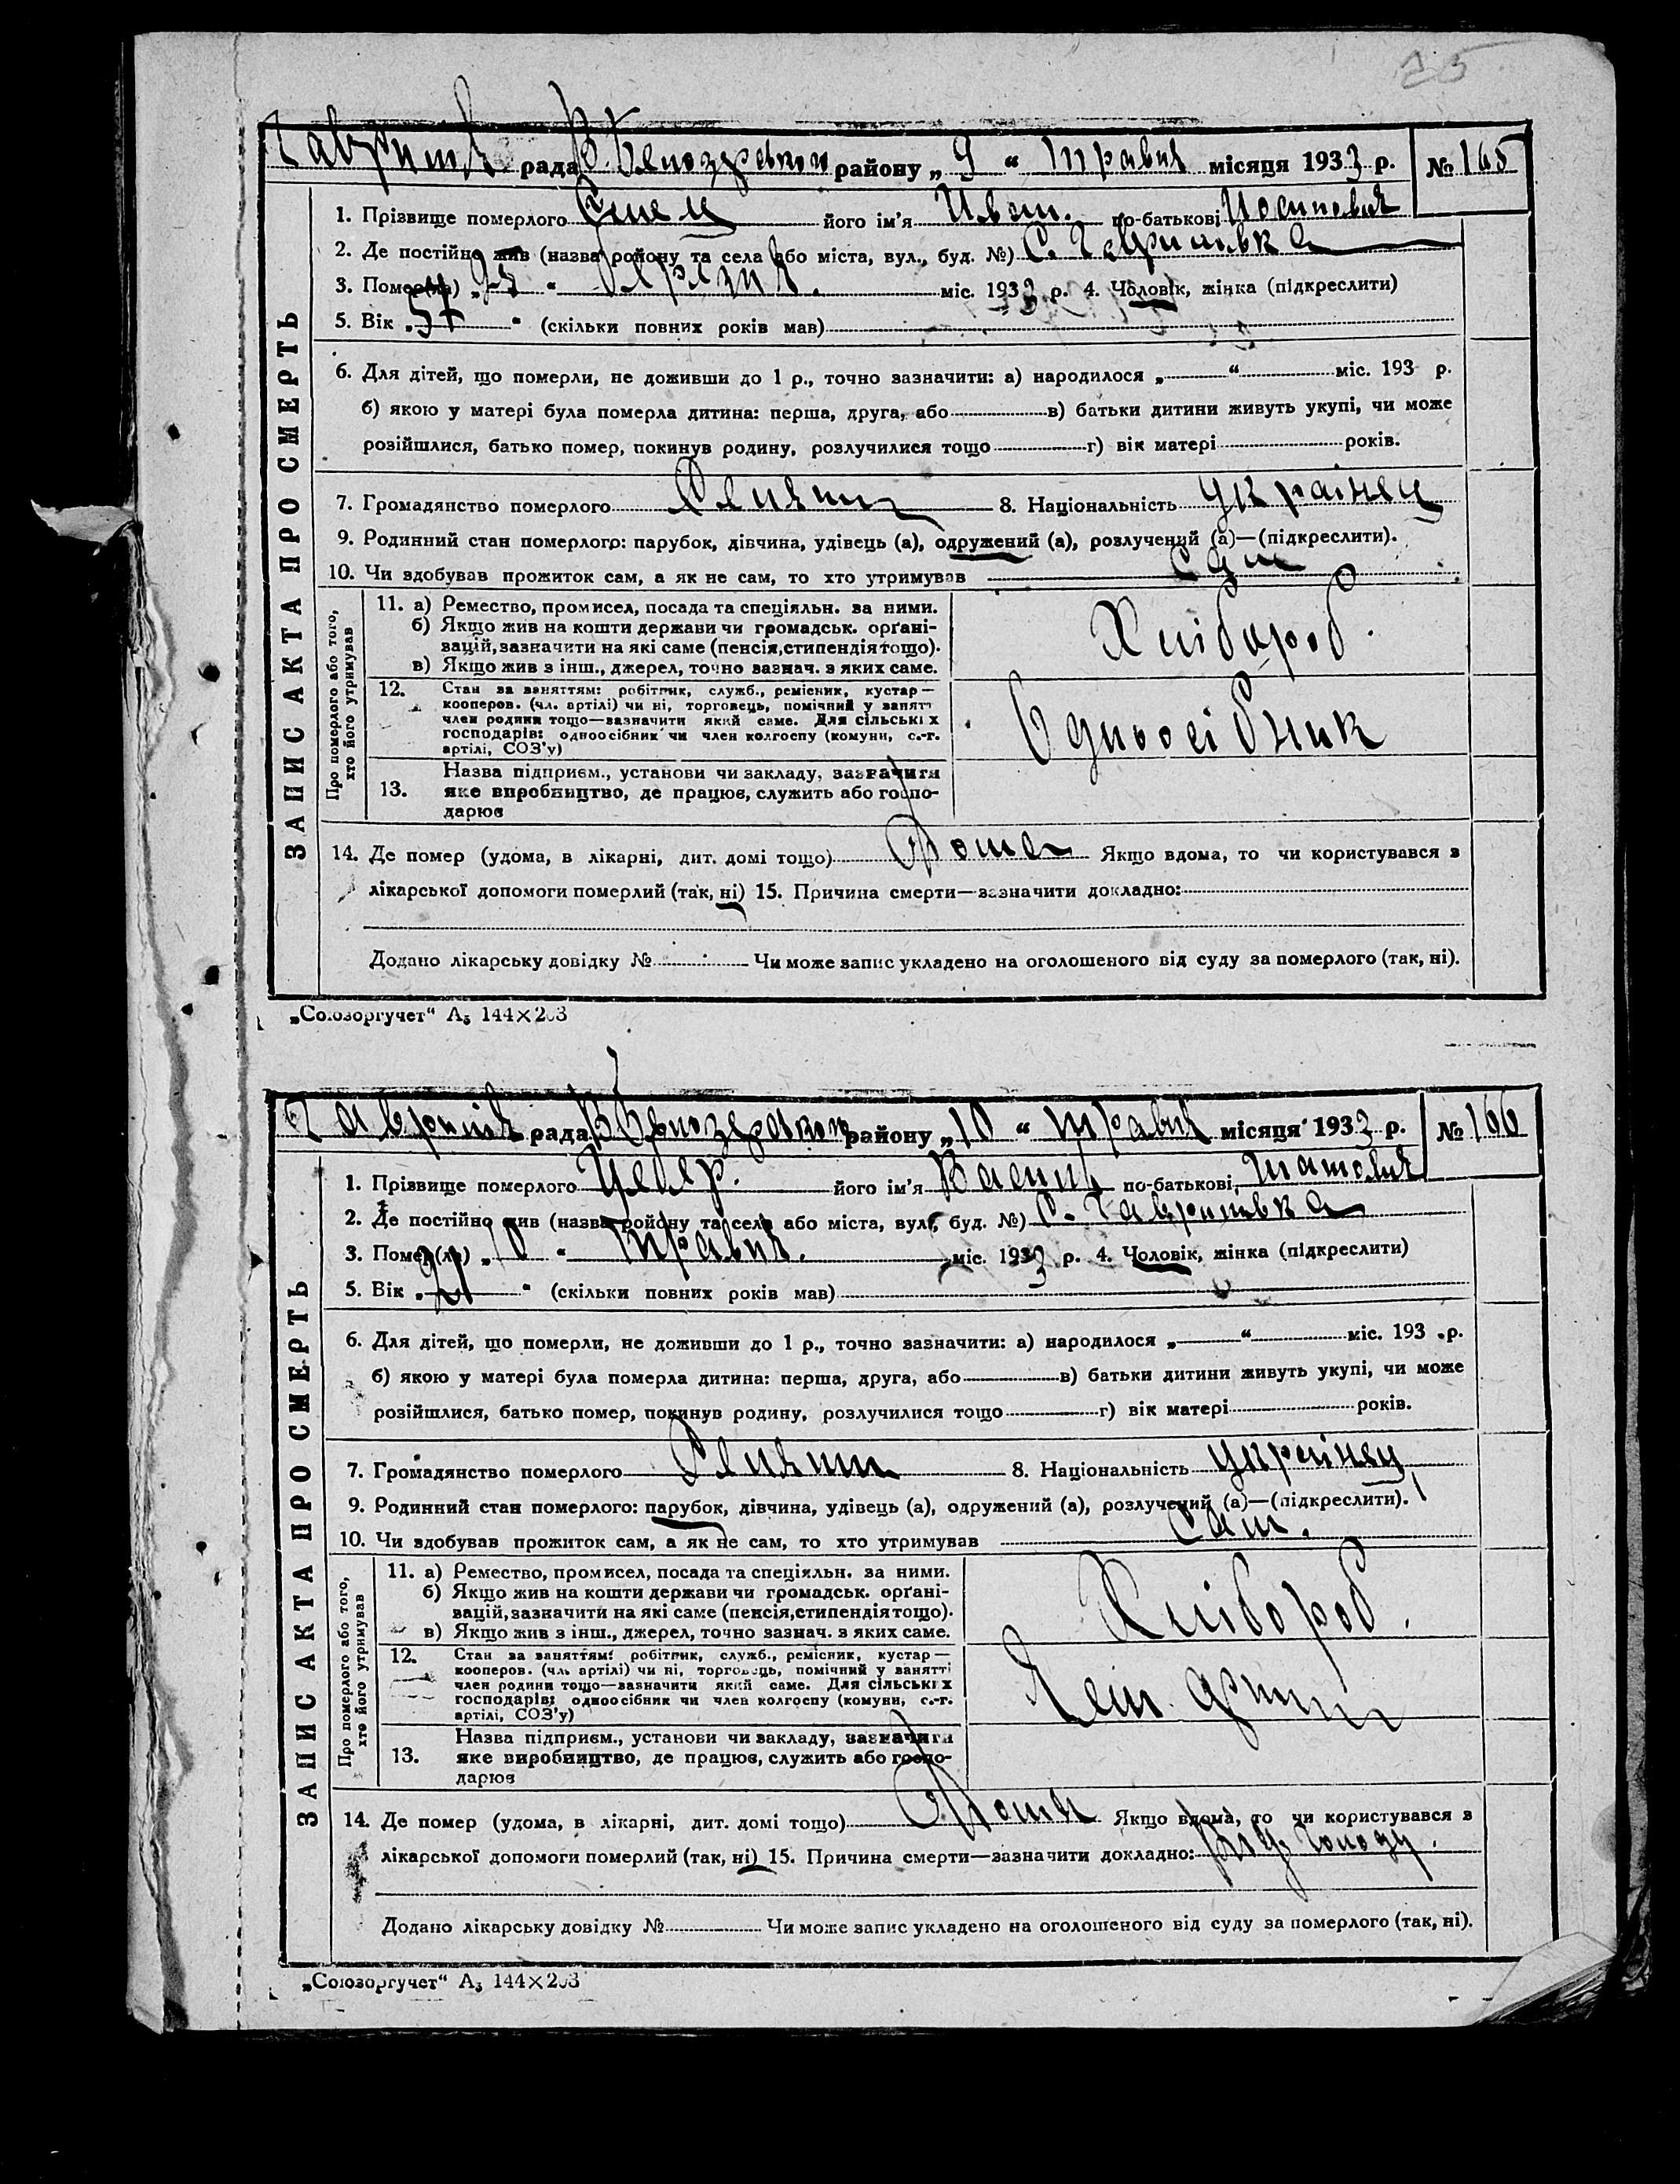 15
рада В. Білозерськог району „ 9 “ травня місяця 1933 р. № 165
ЗАПИС АКТА ПРО СМЕРТЬ
1. Прізвище померлого його ім'я Иван. по-батькові Иосипович
2. Де постійно жив (назва району та села або міста, вул., буд. №) С. Гаврилівка
3. Помер(ла) „ “ міс. 1933 р. 4. Чоловік, жінка (підкреслити)
5. Вік „ 57 “ (скільки повних років мав)
6. Для дітей, що померли, не доживши до 1 р., точно зазначити: а) народилося „ “ міс. 193 р.
б) якою у матері була померла дитина: перша, друга, або в) батьки дитини живуть укупі, чи може
розійшлися, батько помер, покинув родину, розлучилися тощо г) вік матері років.
7. Громадянство померлого Селянин 8. Національність українец
9. Родинний стан померлого: парубок, дівчина, удівець (а), одружений (а), розлучений (а)—(підкреслити).
10. Чи здобував прожиток сам, а як не сам, то хто утримував Сам
Про померлого або того, хто його утримував
11. а) Ремество, промисел, посада та спеціяльн. за ними.
б) Якщо жив на кошти держави чи громадськ. орґані-
зацій, зазначити на які саме (пенсія, стипендія тощо).
в) Якщо жив з інш., джерел, точно зазнач. з яких саме.
Хлібороб.
12. Стан за заняттям: робітник, служб., ремісник, кустар—
кооперов. (чл. артілі) чи ні, торговець, помічний у занятті
член родини тощо—зазначити який саме. Для сільських
господарів: одноосібник чи член колгоспу (комуни, с.-г.
артілі, СОЗ'у)
Одноосібник
13. Назва підприєм., установи чи закладу, зазначити
яке виробництво, де працює, служить або госпо-
дарює
14. Де помер (удома, в лікарні, дит. домі тощо) Дома Якщо вдома, то чи користувався з
лікарської допомоги померлий (так, ні) 15. Причина смерти—зазначити докладно:
Додано лікарську довідку № Чи може запис укладено на оголошеного від суду за померлого (так, ні).
„Союзоргучет“ А5 144×203
рада В. Білозерськог району „ 10 “ травня місяця 1933 р. № 166
ЗАПИС АКТА ПРО СМЕРТЬ
1. Прізвище померлого його ім'я Васил по-батькові
2. Де постійно жив (назва району та села або міста, вул., буд. №) С. Гаврилівка
3. Помер(ла) „ 10 “ травня. міс. 1933 р. 4. Чоловік, жінка (підкреслити)
5. Вік „ 21 “ (скільки повних років мав)
6. Для дітей, що померли, не доживши до 1 р., точно зазначити: а) народилося „ “ міс. 193 р.
б) якою у матері була померла дитина: перша, друга, або в) батьки дитини живуть укупі, чи може
розійшлися, батько помер, покинув родину, розлучилися тощо г) вік матері років.
7. Громадянство померлого Селянин 8. Національність українец
9. Родинний стан померлого: парубок, дівчина, удівець (а), одружений (а), розлучений (а)—(підкреслити).
10. Чи здобував прожиток сам, а як не сам, то хто утримував Сам.
Про померлого або того, хто його утримував
11. а) Ремество, промисел, посада та спеціяльн. за ними.
б) Якщо жив на кошти держави чи громадськ. орґані-
зацій, зазначити на які саме (пенсія, стипендія тощо).
в) Якщо жив з інш., джерел, точно зазнач. з яких саме.
Хлібороб.
12. Стан за заняттям: робітник, служб., ремісник, кустар—
кооперов. (чл. артілі) чи ні, торговець, помічний у занятті
член родини тощо—зазначити який саме. Для сільських
господарів: одноосібник чи член колгоспу (комуни, с.-г.
артілі, СОЗ'у)
Член артіли
13. Назва підприєм., установи чи закладу, зазначити
яке виробництво, де працює, служить або госпо-
дарює
14. Де помер (удома, в лікарні, дит. домі тощо) Дома Якщо вдома, то чи користувався з
лікарської допомоги померлий (так, ні) 15. Причина смерти—зазначити докладно: від голоду.
Додано лікарську довідку № Чи може запис укладено на оголошеного від суду за померлого (так, ні).
„Союзоргучет“ А5 144×203